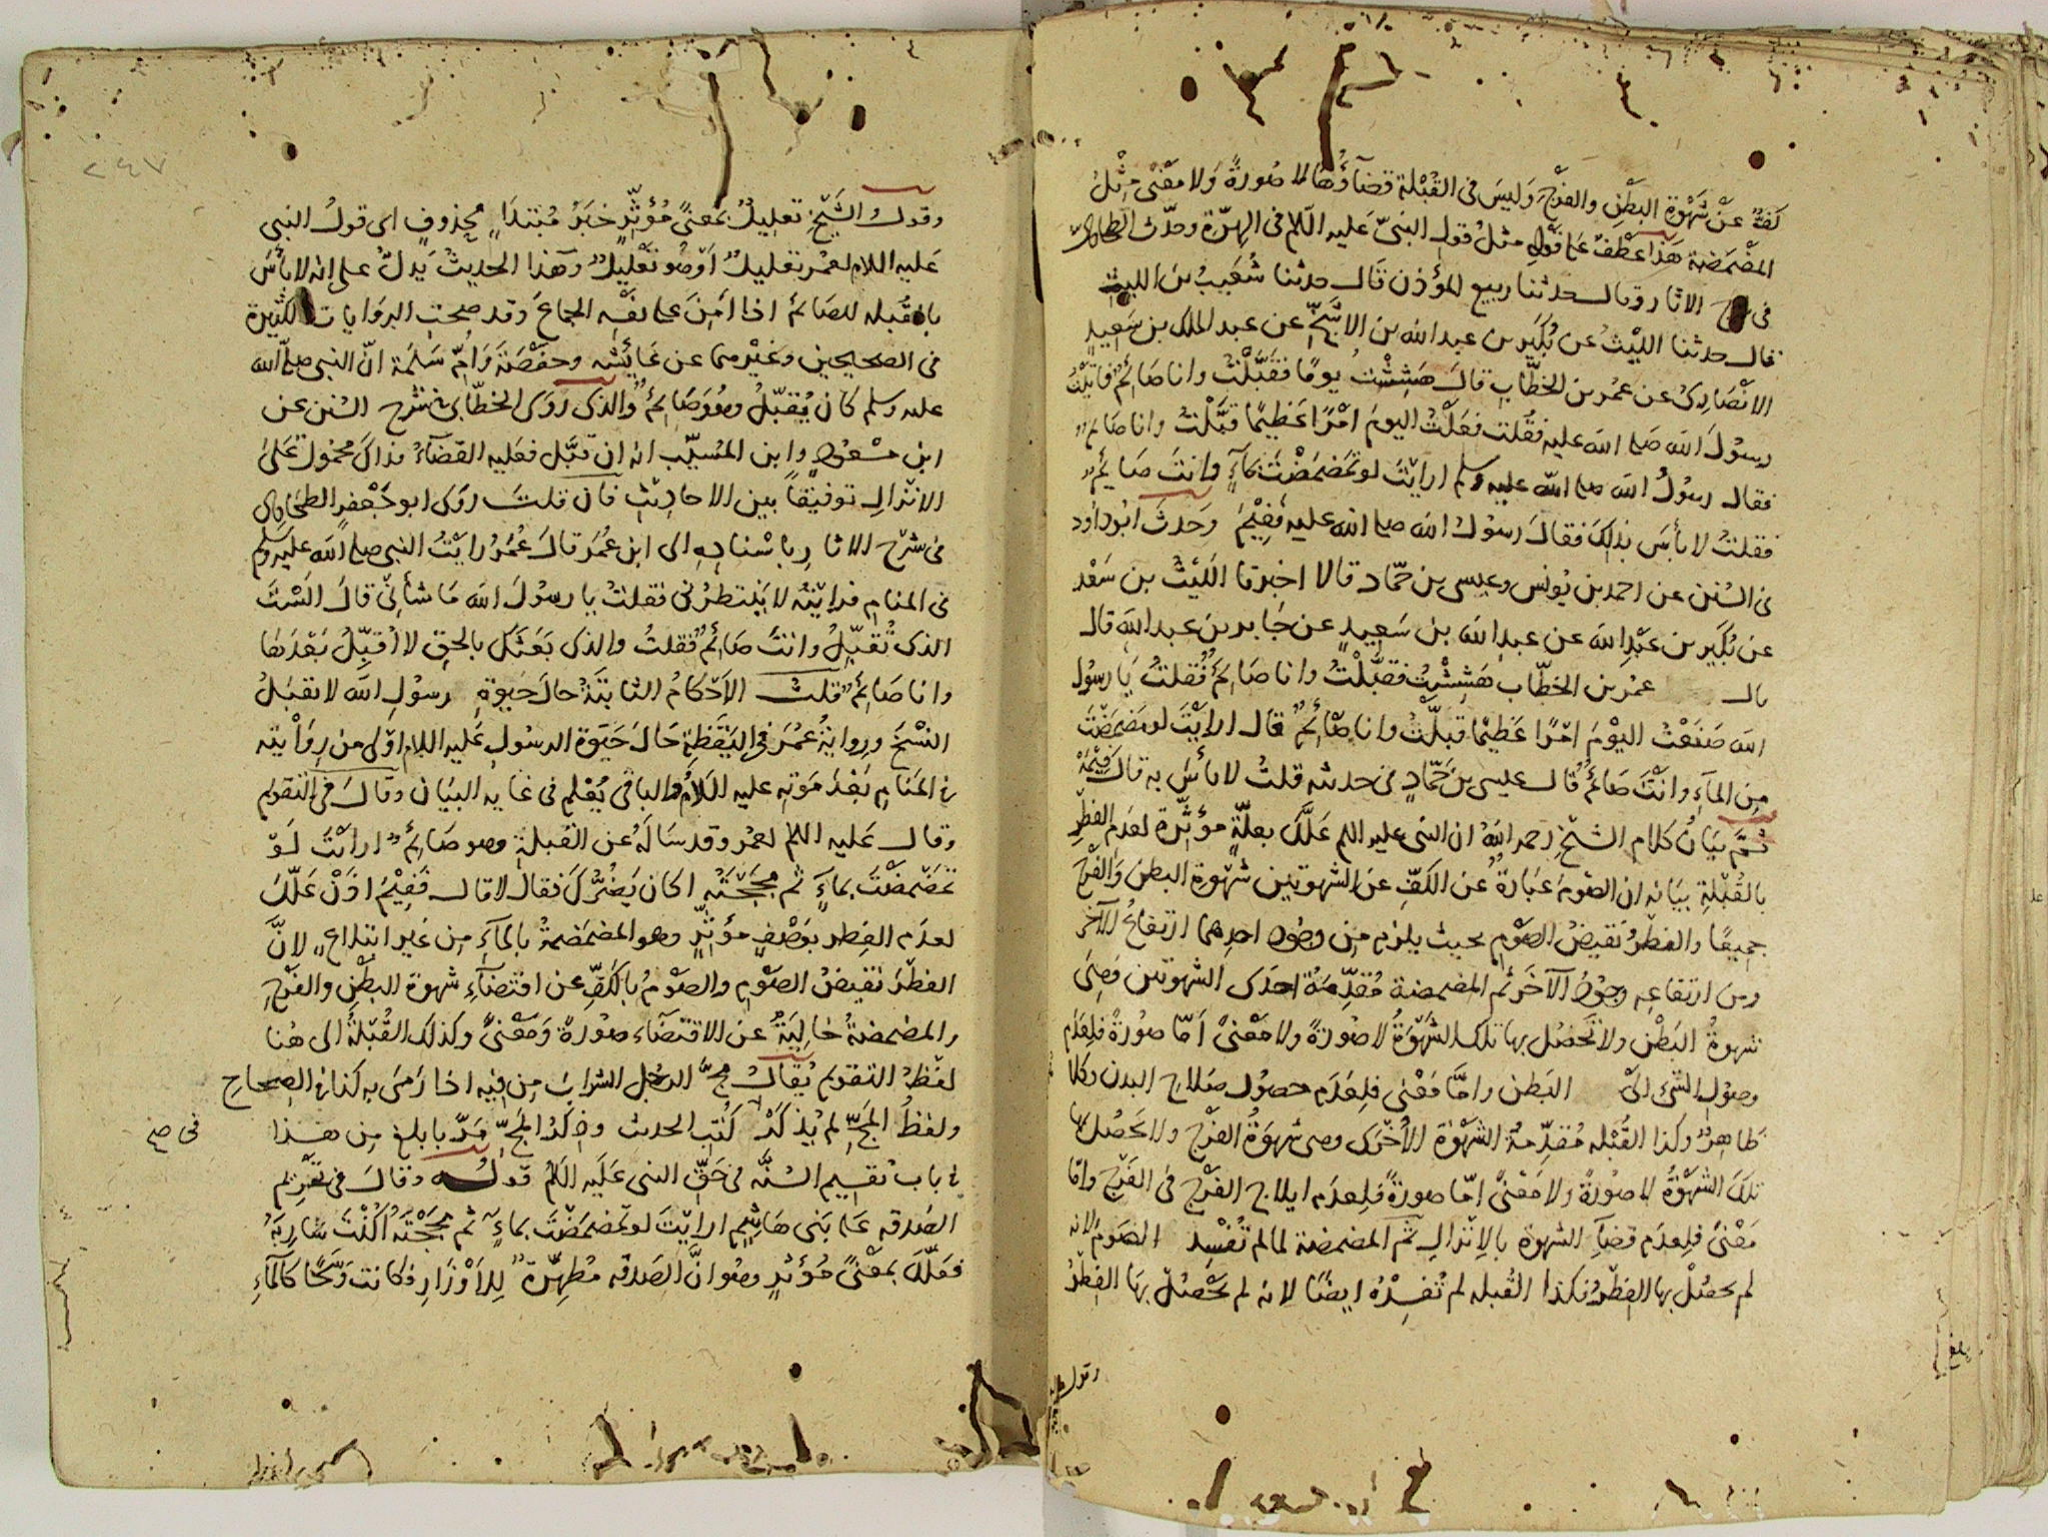 كَفَّتْه عَنْ شَهْوَةِ البَطْنِ والفَرْجِ وَلَيسَ فى القُبْلة قضآؤُهَا لا صُورةً وَلا مَعْنًى مِثْلُ
المَضْمَضة هَذا عَطْفٌ عَلى قَوْلِه مثلُ قولِ النبىّ عَليه السّلام فى الهِرّة وحدّث الطحاوىّ
فى شرح الاثار وقال حدثنا ربيع المؤذن قال حدثنا شُعَيبُ بن الليث
قال حدثنا الليْثُ عن بُكَير بن عبد الله بن الاشَجِّ عن عبد الملك بن سَعِيدٍ
الانْصَارِىّ عن عمر بن الخطّاب قالَ هَشِشْتُ يومًا فقَبَّلْتُ وانا صَائِمٌ فاتَيْتُ
رسُولَ الله صلى الله عليه فقُلت فعَلْتُ اليومَ امْرًا عَظِيمًا قَبَّلْتُ وانا صَائم
فقال رسُولُ الله صلى الله عليه وسلم ارايْتَ لو تمَضْمَضْتَ بمَاءٍ وانتَ صَائِمٌ
فقلتُ لا بأسَ بذلِكَ فقالَ رسُولُ الله صلى الله عليه ففِيْمَ وَحدثَ ابُوداود
فى السُنن عن احمد بن يُونس وعيسى بن حمّاد قالا اخبرنا اللّيثُ بن سَعْد
عن بُكَير بن عَبْدِ الله عن عبدِ الملك بن سَعِيدٍ عن جَابر بن عبد الله قال
قال عمر بن الخطّاب هَشِشْتُ فقبَّلْتُ وانا صَائِمٌ فُقلتُ يَا رسُول
الله صَنَعْتُ اليَوْمَ امْرًا عَظِيْمًا قبَّلْتُ وانا صَائِمٌ قال ارايْتَ لو مَضمَضْتَ
مِن المآءِ وانْتَ صَائمٌ قال عيسى بن حَمّادٍ فى حدثه قلتُ لا بأسَ به قال فِيْمَهْ
ثمّ بيَانُ كلام الشيْخِ رحمه اللهُ ان النبى عليه السلم عَلَّلَ بعلّةٍ مؤثِّرة لعَدم الفِطْرِ
بالقُبْلَةِ بيَانه ان الصّومَ عبَارةٌ عن الكَفِّ عن الشهوتين شهْوة البطن والفَرْجِ
جمِيعًا والفِطْرُ نقيضُ الصَّوم بحيث يلزم مِن وجُودِ احدِهما ارتفاعُ الآخر
ومن ارتفاعِه وجُودُ الآخَر ثم المضمضة مُقدِّمةُ احدَى الشهوتين وَهِىَ
شهوةُ البَطْنِ ولا تَحصُل بها تلك الشَّهْوَةُ لا صُورَةً ولا مَعْنىً امّا صورةً فلِعَدَم
وصُولِ الشىء الىْ البَطن وامَّا مَعْنى فلِعَدَم حصُول صَلاحِ البدن وكلا
ظاهِرٌ وكذا القُبْله مُقدِّمةُ الشهْوَة الأُخْرَى وهى شهوَةُ الفَرْجِ ولا تحصُل بها
تلك الشهْوَةُ لا صُورةً ولا مَعْنىً امّا صورةً فلِعدَم ايلاج الفَرْج فى الفَرْج وامّا
مَعْنىً فلِعدَم قضآءِ الشهوة بالاِنْزالِ ثمّ المضمضة لما لم تُفْسِد الصَوم لانه
لم يحصُلْ بها الفِطْرُ فكذا القُبله لم تُفسِدْهُ ايضًا لانه لم يَحْصُلْ بهَا الفِطْرُ
وقول
٢٤٧
وقولُ الشَيْخِ تعليلٌ بمَعنىً مُؤَثِّرٍ خبَرُ مُبْتدَاءٍ محذوفٍ اى قولُ النبى
عَليه السلام لعمر تعليلٌ اوْ هُو تَعْليلٌ وهذا الحديثُ يَدلّ على انه لا بأسَ
بالقُبله للصَائم اذا امِنَ على نفْسِه الجِماعَ وَقد صحتِ الروَايات الكثيرة
فى الصحيحين وغيرهما عن عَائِشه وحفْصَةَ وَامّ سَلمَة انّ النبى صلى الله
عليه وسلم كان يُقبّلُ وهُوَ صَائمٌ والذى رَوَى الخطّابى فى شرح السُنن عن
ابن مسْعودٍ وابن المُسيّب انه ان قَبَّل فعَليه القضَآءُ فذاكَ محْمُولٌ عَلى
الانْزالِ توفيْقًا بين الاحاديْث فان قلتَ روَى ابو جَعْفرٍ الطحَاوىّ
فى شرْح الاثار باسْنادِهِ الى ابن عُمَر قالَ عُمَرُ رايْتُ النبى صلى الله عليه وسلم
فى المنام فرايْتُه لا ينْظرُنى فقلتُ يا رسولَ الله مَا شأنِىْ قالَ الَسْتَ
الذى تُقَبِّلُ وانتَ صَائمٌ فقلتُ والذى بَعَثَكَ بالحقِ لا اُقَبِّلُ بَعْدَهَا
وانا صَائمٌ قلتُ الاحْكامُ الثابتَةُ حالَ حَيوةِ رسولِ الله لا تقبَلُ
النسْخَ ورِوايةُ عُمَرَ فى اليَقَظةِ حَالَ حَيَوة الرسُولِ عَليه السلام اوْلى من رِوَايته
فى المنَام بَعْدَ مَوته عليه السّلامُ والباقى يُعْلم فى غايه البيَان وقالَ فى التقويم
وقال عَليه السلم لعمر وقد سَالَهُ عن القبلة وهو صَائمٌ ارايْتَ لَوْ
تمَضْمَضْتَ بماءٍ ثم مجَجْتَه اكان يَضُرُّكَ فقالَ لا قال فَفِيْمَ اذَنْ علّلَ
لعدَم الفِطر بوَصْفٍ مؤثِّرٍ وهو المضمَضةُ بالمآءِ مِن غَير ابتلاعٍ لانَّ
الفطْرَ نقيضُ الصَوْم والصَوْمُ بالكَفِّ عن اقتضَآءِ شهوة البَطْنِ والفَرْجِ
والمضمضةُ خاليَةٌ عن الاقتضَاء صُورةً وَمَعْنىً وكذلك القُبْلَةُ الى هُنا
لفظُ التقويم يُقالُ مجَّ الرجُل الشرابَ مِن فيْه اذا رَمَى به كذا فى الصِحاحِ
ولفظُ المَجِّ لم يُذكَرْ كُتبِ الحدث وذِكْرُ المَجِّ مَرَّ بابلغ مِن هذا
فى صح
فى باب تقسِيم السُنَّه فى حَقِّ النبى عَليه السَلم قولُه وقالَ فى تحْريم
الصَدقه عَلى بَنى هَاشِم ارايْتَ لو تمضمَضْتَ بماءٍ ثم مجَجْتَهُ اكُنْتَ شارِبَهُ
فعَلَّلَ بمَعْنىً مُؤَثرٍ وهُو انَّ الصَدقه مُطهِّرةٌ لِلاَوْزارِ فكانت وَسَخًا كالمآءِ